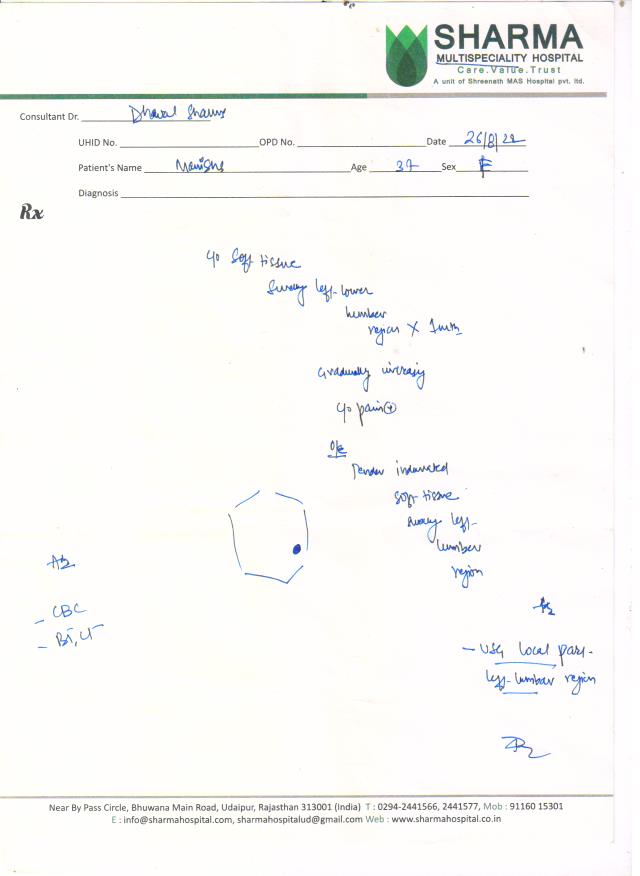 SHARMA
MULTISPECIALITY HOSPITAL
Care.Value.Trust
A unit of Shreenath MAS Hospital pvt. ltd.
Consultant Dr. Dhaval Sharma
UHID No. OPD No. Date 26/8/22
Patient's Name Manisha Age 37 Sex F
Diagnosis
Rx
c/o Soft tissue
Swelling left lower
lumbar
region X 1 mth
Gradually increasing
c/o pain ⊕
O/E
Tender indurated
soft tissue
swelling left
lumbar
region
- CBC
- BT, CT
- USG local part
left lumbar region
Near By Pass Circle, Bhuwana Main Road, Udaipur, Rajasthan 313001 (India) T : 0294-2441566, 2441577, Mob : 91160 15301
E : info@sharmahospital.com, sharmahospitalud@gmail.com Web : www.sharmahospital.co.in